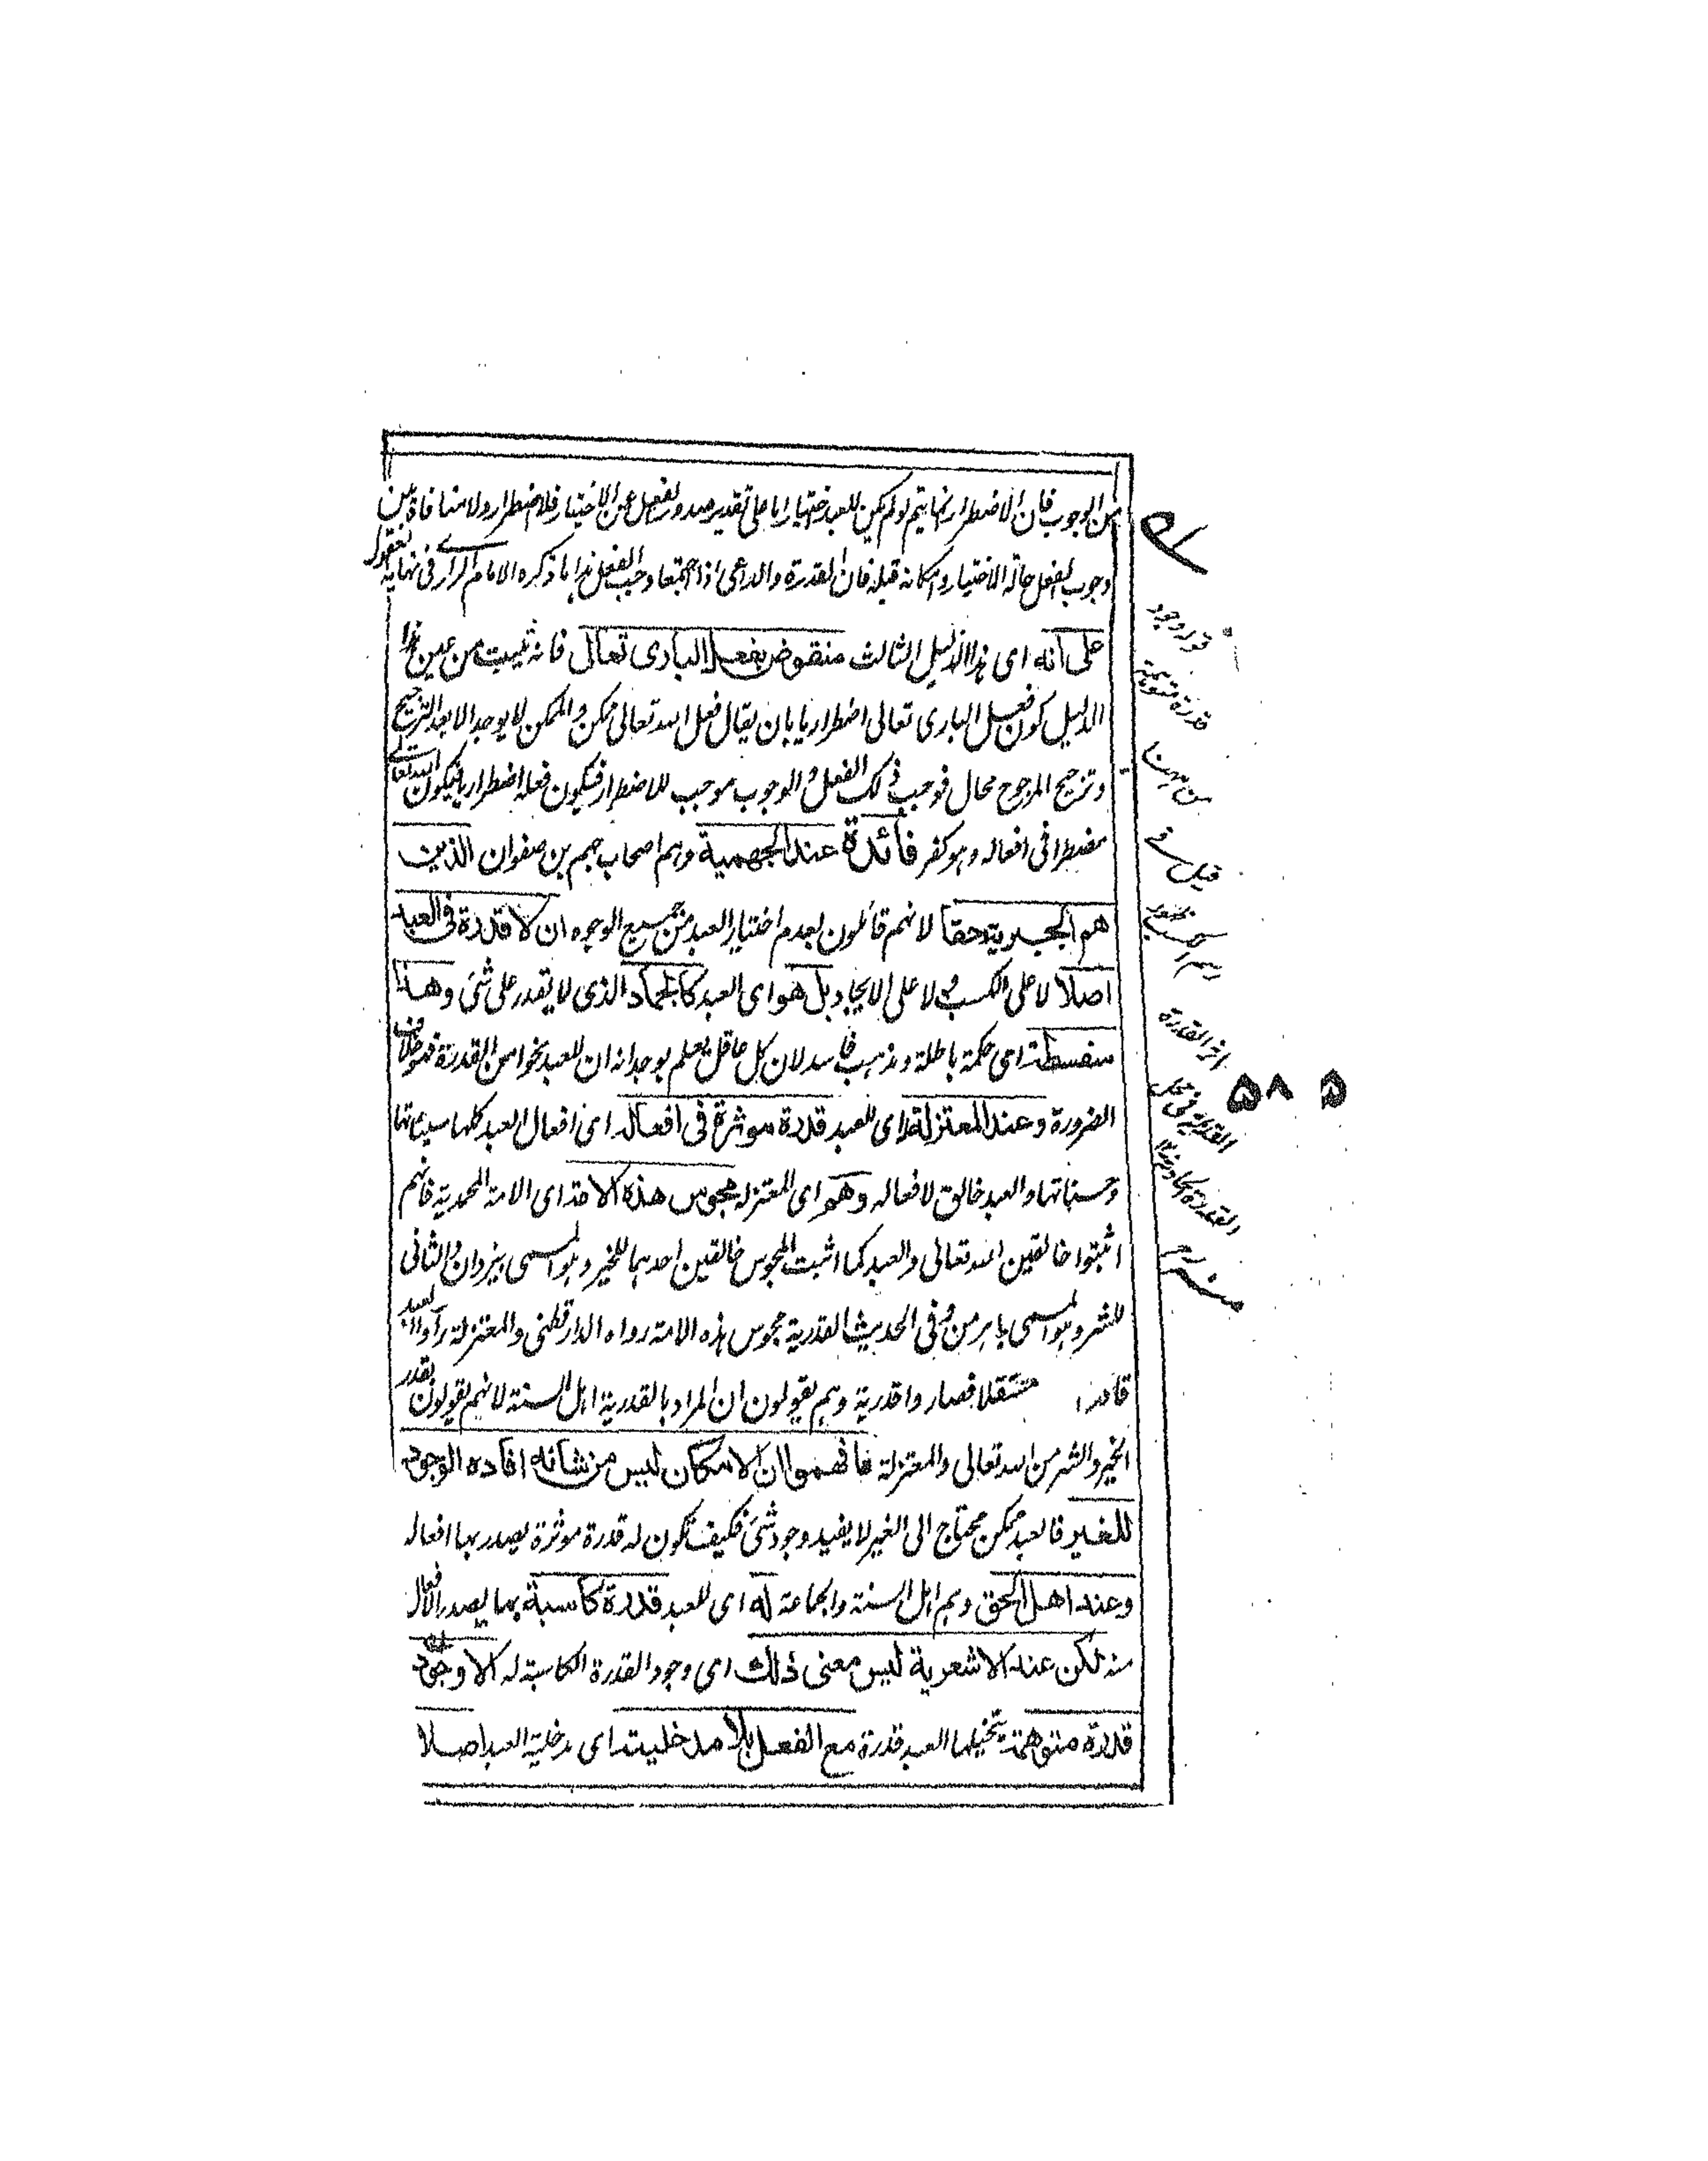 من الوجوب فان الاضطرار انما يتم لو لم يكن للعبد اختيار اما على تقدير صدور الفعل عن الاختيار فلا اضطرار ولا منافاة بين
وجوب الفعل حالة الاختيار وامكانه قبله فان القدرة والداعى اذا اجتمعا وجب الفعل هذا ما ذكره الامام الرازى فى نهاية العقول
على انه اى هذا الدليل الثالث منقوض بفعل البارى تعالى فانه يثبت من عين هذا
الدليل كون فعل البارى تعالى اضطراريا بان يقال فعل الله تعالى ممكن والممكن لا يوجد الا بعد الترجيح
وترجيح المرجوح محال فوجب ذلك الفعل والوجوب موجب للاضطرار فيكون فعله اضطراريا فيكون الله تعالى
مضطرا فى افعاله وهو كفر فائدة عند الجهمية وهم اصحاب جهم بن صفوان الذين
هم الجبرية حقا لانهم قائلون بعدم اختيار العبد من جميع الوجوه ان لا قدرة فى العبد
اصلا لا على الكسب ولا على الايجاد بل هو اى العبد كالجماد الذى لا يقدر على شئ وهذا
سفسطة اى حكمة باطلة ومذهب فاسد لان كل عاقل يعلم بوجدانه ان للعبد نحوا من القدرة فهو خلاف
الضرورة وعند المعتزلة له اى للعبد قدرة موثرة فى افعاله اى افعال العبد كلها سيئاتها
وحسناتها والعبد خالق لافعاله وهم اى المعتزلة مجوس هذه الامة اى الامة المحمدية فانهم
اثبتوا خالقين الله تعالى والعبد كما اثبت المجوس خالقين احدهما للخير وهو المسمى بيزدان والثانى
للشر وهو المسمى باهرمن وفى الحديث القدرية مجوس هذه الامة رواه الدارقطنى والمعتزلة رأوا العبد
قادرا مستقلا فصاروا قدرية وهم يقولون ان المراد بالقدرية اهل السنة لانهم يقولون بقدر
الخير والشر من الله تعالى والمعتزلة ما فهموا ان الامكان ليس من شانه افادة الوجود
للغير فالعبد ممكن محتاج الى الغير لا يفيد وجود شئ فكيف تكون له قدرة موثرة يصدر بها افعاله
وعند اهل الحق وهم اهل السنة والجماعة له اى للعبد قدرة كاسبة بها يصدر الافعال
منه لكن عند الاشعرية ليس معنى ذلك اى وجود القدرة الكاسبة له الا وجود
قدرة متوهمة يتخيلها العبد قدرة مع الفعل بلا مدخلية اى مدخلية العبد اصلا
قوله وجود
قدرة متوهمة
قيل
اثر القدرة
٥٨٥